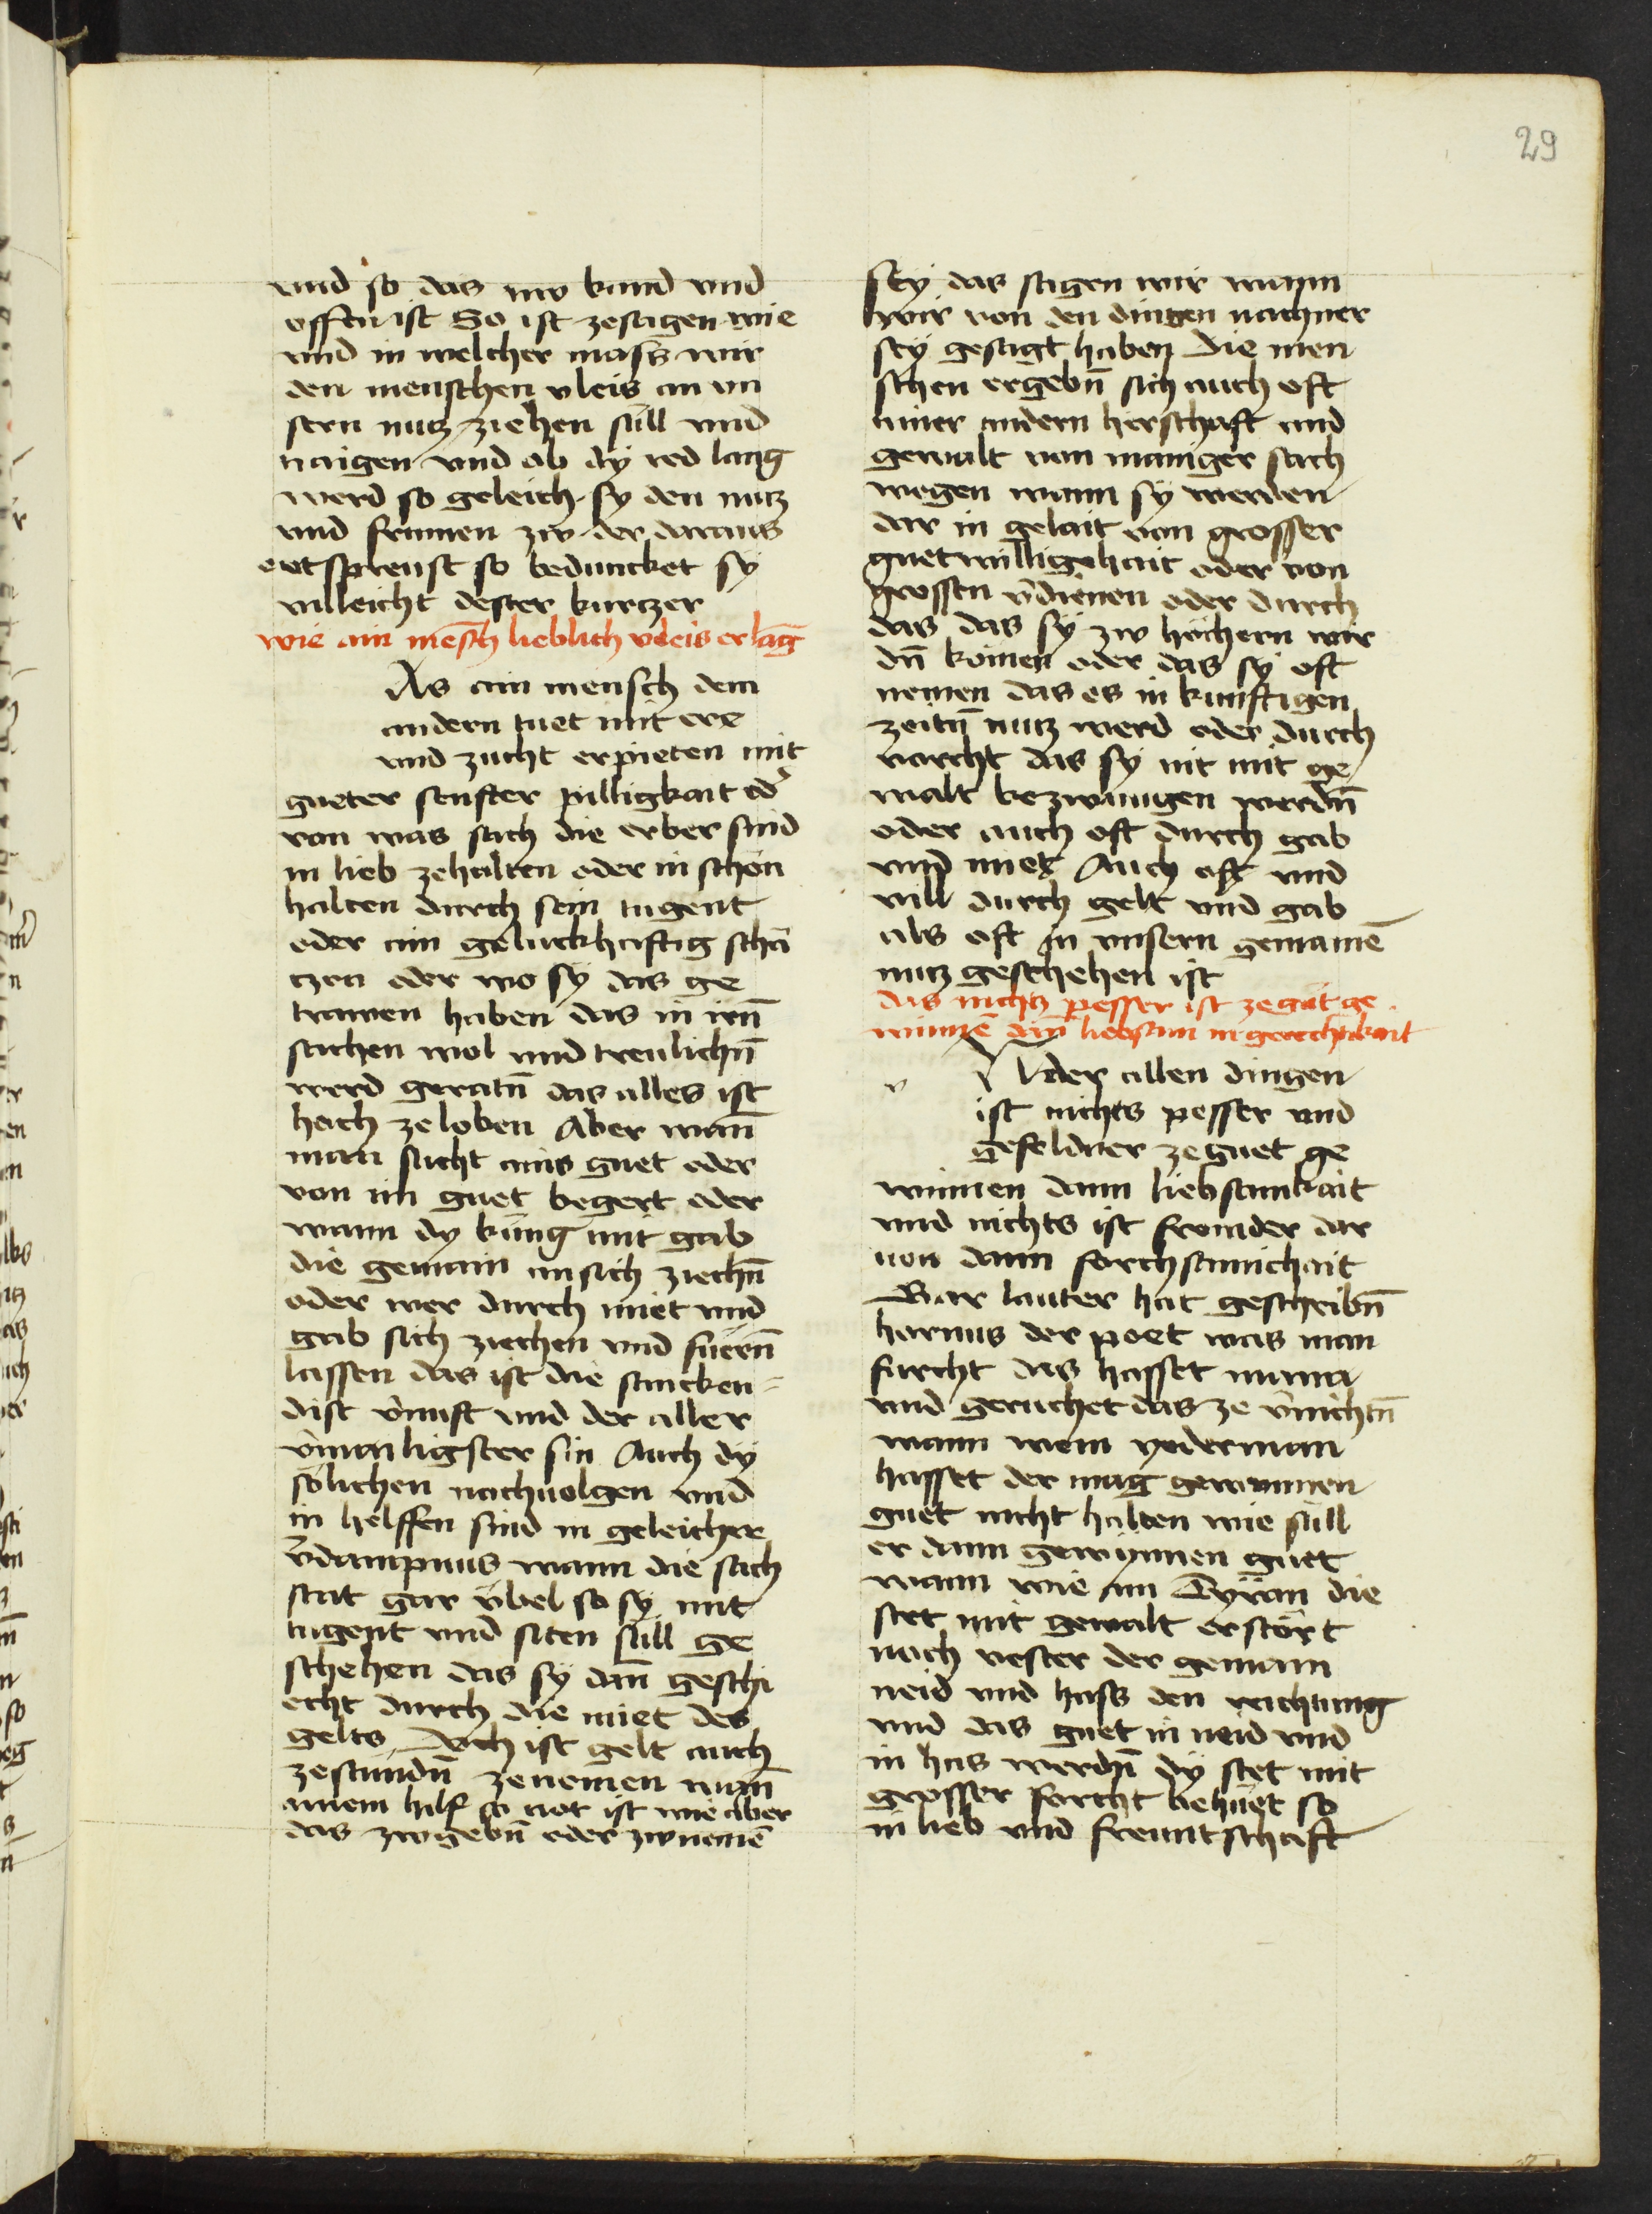 29
vnd so das nw kund vnd
offen ist So ist zesagen wie
vnd in welcher mass wir
den menschen vleis an vn
sern nutz ziehen süll vnd
naigen vnd ob dy red lang
werd so geleich sy den nutz
vnd frumen zw der daraus
entsprenst so beduncket sy
villeicht dester kurczer
wie ain mēsch lieblich vleis erlāg
As ain mensch dem
andern tuet mit ere
vnd zucht erpieten mit
gueter senfter pilligkait od̄
von was sach die erber sind
in lieb zehalten oder in schon
halten durch sein tugent
oder ain geluckhaftig schä
czen oder wo sy das ge
trawen haben das in irn̄
sachen wol vnd treulichn̄
werd geratn̄ das alles ist
hoch ze loben Aber wan̄
man sucht ains guet oder
von im guet begert oder
wann dy küng mit gab
die gemain an sich ziechn̄
oder wer durch miet vnd
gab sich ziechen vnd fuern̄
lassen das ist die sancken=
dist v̄nuft vnd der aller
v̄mailigster sin Auch dy
sölichen nachuolgen vnd
in helffen sind in geleicher
v̄dampnus wann die sach
stat gar v̈bel so sy mit
tugent vnd siten süll ge
schehen das sy dan̄ geschi
echt durch die miet des
gelts Doch ist gelt auch
zestundn̄ zenemen wan̄
ainem hilf so not ist wie aber
das zwgebn̄ oder zwnemē
sey das sagen wir wann
wir von den dingen nachner
sey gesagt haben Die men
schen ergebn̄ sich auch oft
ainer andern herschaft vnd
gewalt von maniger sach
wegen wann sy werden
dar in gelait von grosser
guetwilligchait oder von
grossen v̄dienen oder durch
das das sy zw höchern wir
dn̄ komen oder das sy oft
nemen das es in kunftigen
zeitn̄ nutz werd oder durch
vorcht das sy nit mit ge
walt bezwungen werdn̄
oder auch oft durch gab
vnd miet Auch oft vnd
vill durch gelt vnd gab
als oft in vnsern gemainē
nutz geschehen ist
das nichtz pesser ist ze gůt ge
winnē dan̄ liebsam in gerechtikait
v
Vnder allen dingen
ist nichts pesser vnd
gefeldner ze guet ge
winnen dann liebsamkait
vnd nichts ist fromder dar
von dann forchsamichait
Gar lauter hat geschribn̄
hernius der poet was man
furcht das hasset mann
vnd geruchet das ze v̄nichtn̄
wann wem yederman
hasset der mag gewunnen
guet nicht halten wie süll
er dann gewynnen guet
wann wie ain Tyran die
stet mit gewalt erstört
noch vester der gemain
neid vnd hass den reichtung
vnd das guet in neid vnd
in has werdn̄ dy stet mit
grosser forcht behüet so
in lieb vnd freuntschaft